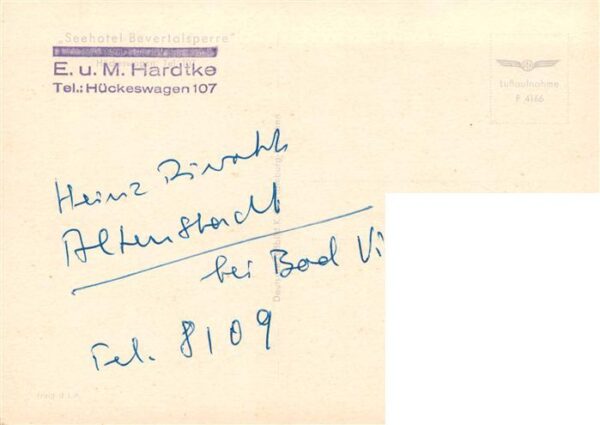 „Seehotel Bevertalsperre"
E. u. M. Hardtke
Tel.: Hückeswagen 107
Luftaufnahme
P 4166
Heinz
Altenstadt
bei Bad Vi
Tel. 8109